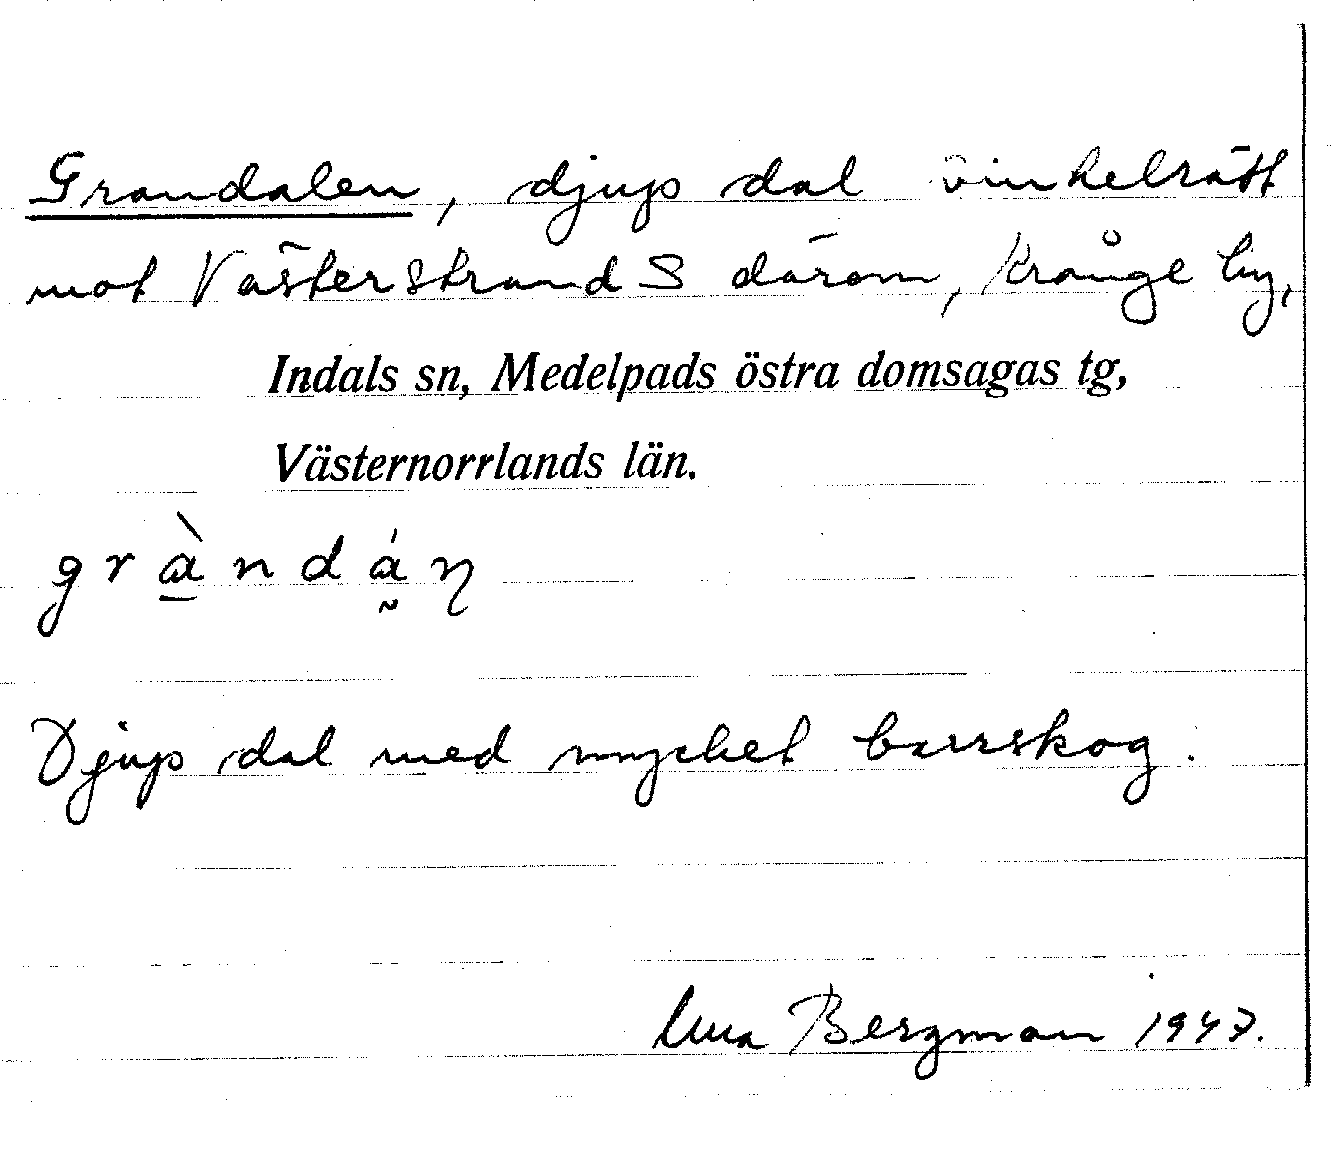 Grandalen, djup dal vinkelrätt
mot Västerstrand S därom, Krånge by,
Indals sn, Medelpads östra domsagas tg,
Västernorrlands län.
grà̱ndá̰ŋ
Djup dal med mycket barrskog.
Bergman 1947.